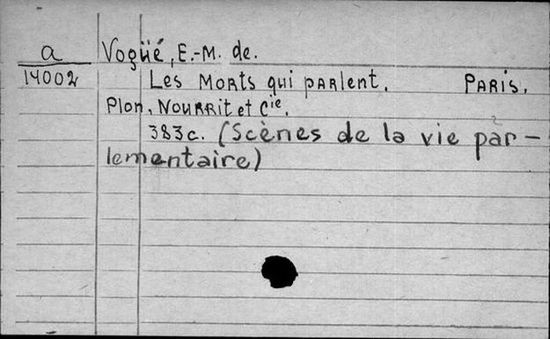 a Vogüé, E.-M. de.
14002 Les Morts qui parlent. Paris,
Plon, Nourrit et Cie,
383c. (Scènes de la vie par-
lementaire)